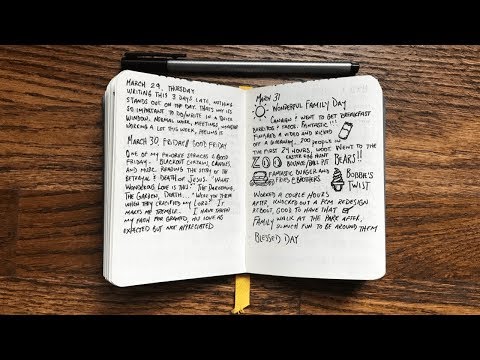 MARCH 29, THURSDAY
WRITING THIS 3 DAYS LATE, NOTHING
STANDS OUT ON THE DAY. THAT'S WHY IT'S
SO IMPORTANT TO DO/WRITE IN A QUICK
WINDOW. NORMAL WORK, MEETINGS,
WORKING A LOT THIS WEEK, FEELING IS
MARCH 30, FRIDAY/GOOD FRIDAY
ONE OF MY FAVORITE SERVICES IS GOOD
FRIDAY. BLACKOUT CURTAINS, CANDLES,
AND MUSIC. READING THE STORY OF THE
BETRAYAL & DEATH OF JESUS. "WHAT
WONDROUS LOVE IS THIS." THE DARKENING,
THE GARDEN, DEATH... "WERE YOU THERE
WHEN THEY CRUCIFIED MY LORD?" IT
MAKES ME TREMBLE. I HAVE TAKEN
MY FAITH FOR GRANTED, HIS LOVE IS
EXPECTED BUT NOT APPRECIATED
MARCH 31
WONDERFUL FAMILY DAY
& I WENT TO GET BREAKFAST
BURRITOS & TACOS. FANTASTIC!!!
FINISHED A VIDEO AND KICKED
OFF A GIVEAWAY. 200 PEOPLE IN
THE FIRST 24 HOURS, WOOT. WENT TO THE
ZOO EASTER EGG HUNT BEARS!!
BOUNCE/BALL PIT
FANTASTIC BURGER AND
FRIES @ BROTHERS
BOBBA'S
TWIST
WORKED A COUPLE HOURS
AFTER, KNOCKED OUT A PCM REDESIGN
REBOUT, GOOD TO HAVE THAT
FAMILY WALK AT THE PARK AFTER,
SO MUCH FUN TO BE AROUND THEM
BLESSED DAY